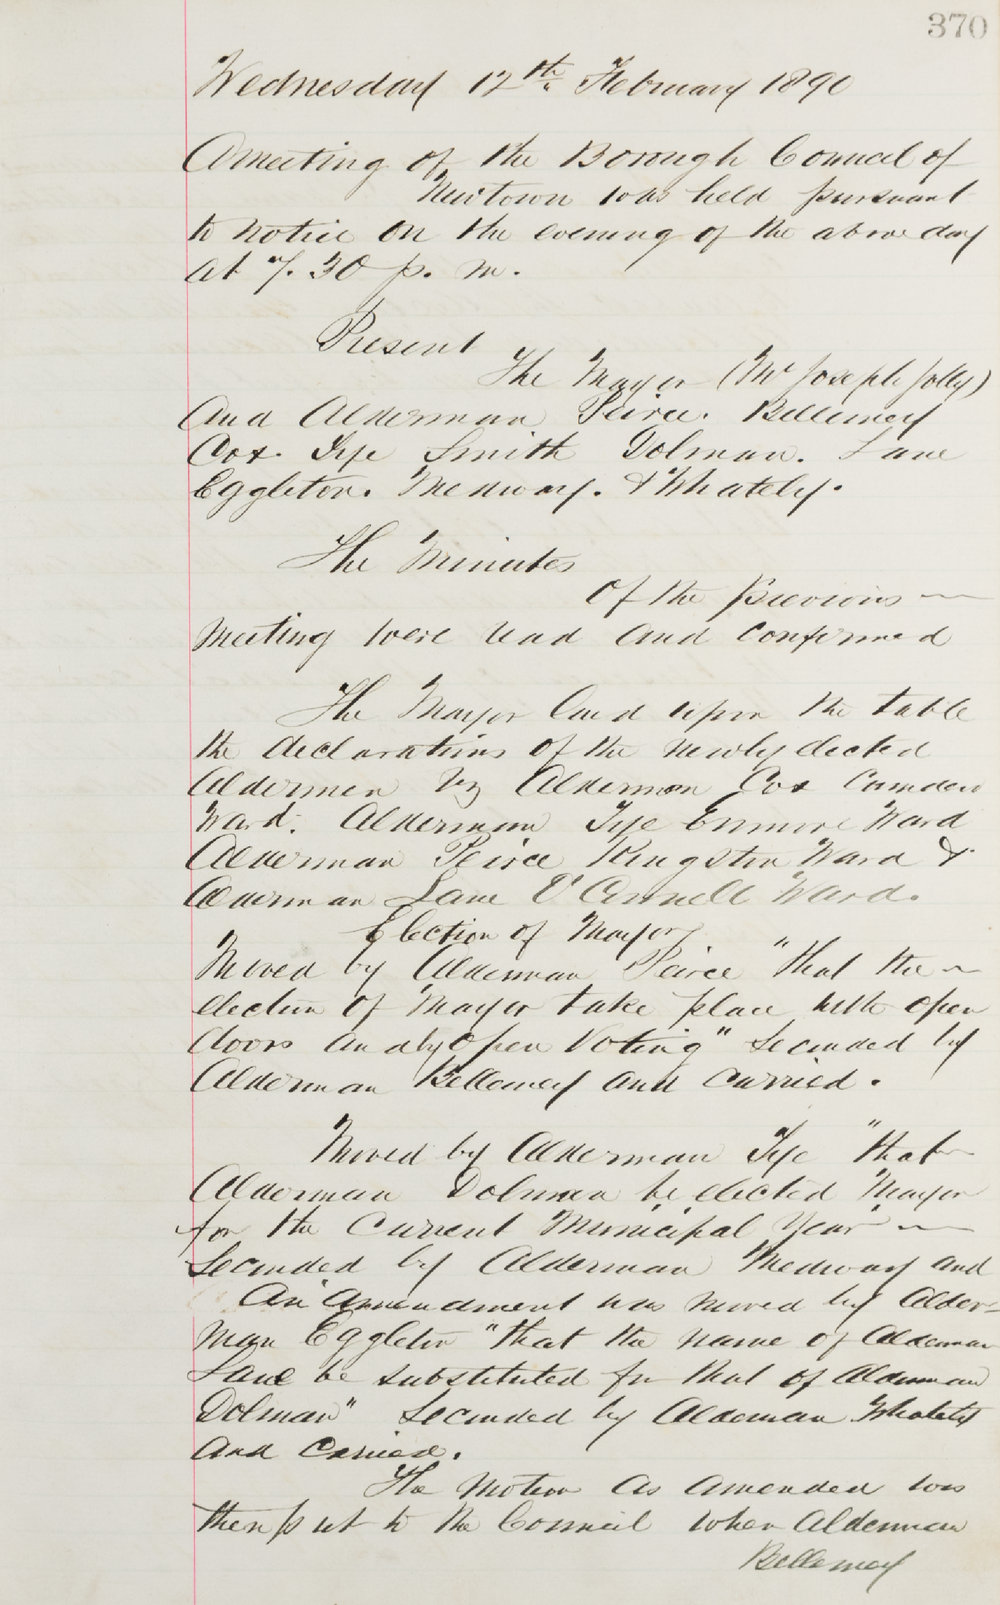 370
Wednesday 12th February 1890
A meeting of the Borough Council of
Newtown was held pursuant
to notice on the evening of the above day
at 7.30 p. m.
Present
The Mayor (Mr Joseph Jolly)
and Alderman Peirce. Bellemey
Cox. Tye Smith Dolman. Lane
Eggleton. Medway. & Whately.
The Minutes
of the previous
meeting were read and confirmed
The Mayor laid upon the table
the declarations of the newly elected
Aldermen viz Alderman Cox Camden
Ward. Alderman Tye Enmore Ward
Alderman Peirce Kingston Ward &
Alderman Lane O'Connell Ward.
Election of Mayor
Moved by Alderman Peirce "that the
election of Mayor take place with open
doors and by open Voting" Seconded by
Alderman Bellemey and carried.
Moved by Alderman Tye "that
Alderman Dolman be elected Mayor
for the Current Municipal Year
Seconded by Alderman Medway and
An Amendment was moved by Alder=
man Eggleton "that the name of Alderman
Lane be substituted for that of Alderman
Dolman" Seconded by Alderman Whately
and Carried.
The Motion as amended was
then put to the Council when Alderman
Bellemey